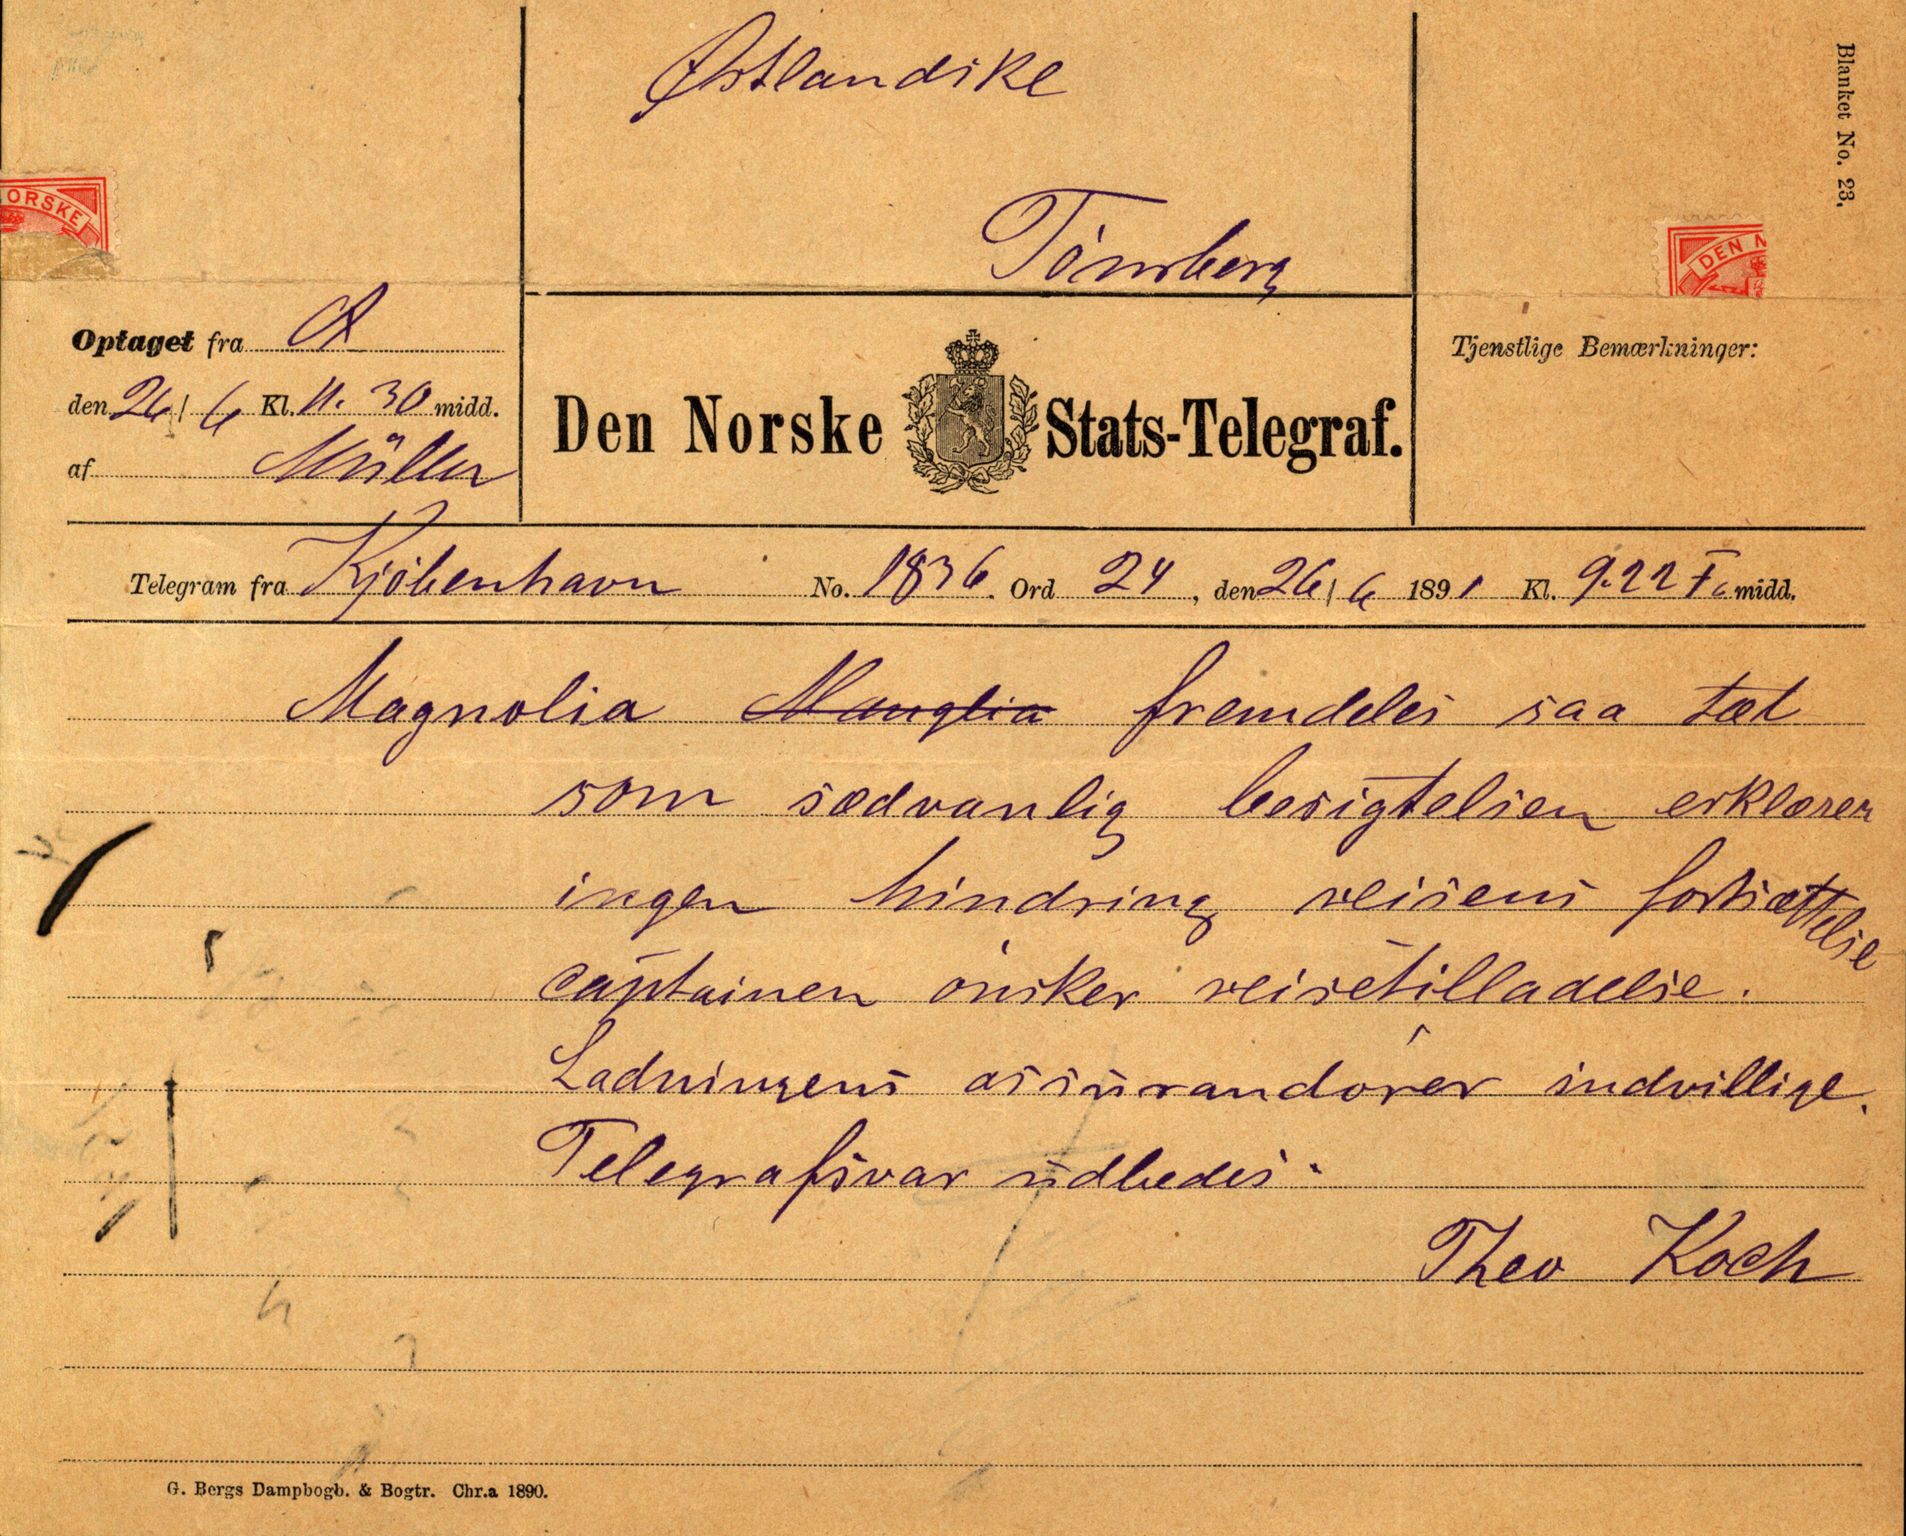 Østlandske
Tönsberg
Blanket No. 23.
ORSKE
DEN N
Optaget fra A
den 26/6 Kl. 11.30 midd.
af Müller
Den Norske Stats-Telegraf.
Tjenstlige Bemærkninger:
Telegram fra Kjöbenhavn No. 1836. Ord 24, den 26/6 1891 Kl. 9.22 F. midd.
Magnolia Manglia fremdeles saa tæt
som sædvanlig besigtelsen erklærer
ingen hindring reisens fortsættelse
captainen önsker reisetilladelse.
Ladningens assurandörer indvillige.
Telegrafsvar udbedes.
Theo Koch
G. Bergs Dampbogb. & Bogtr. Chr.a 1890.